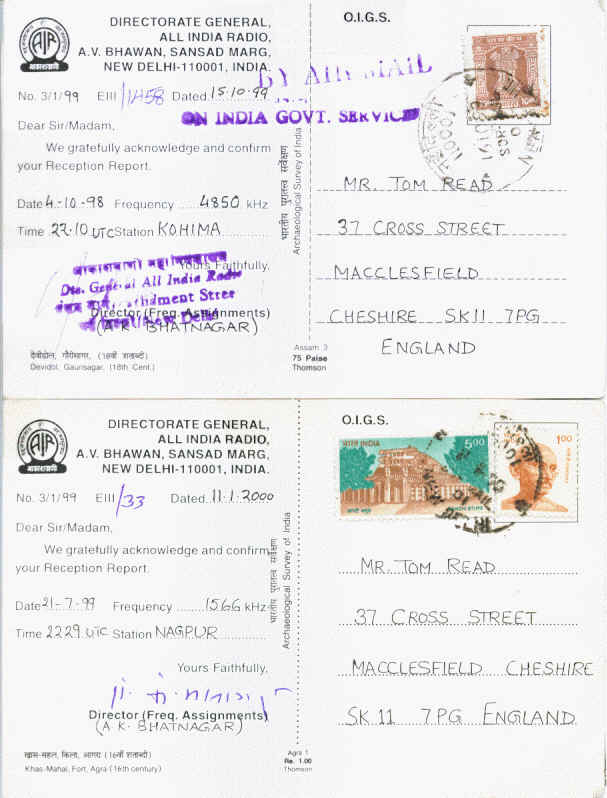 DIRECTORATE GENERAL,
ALL INDIA RADIO,
A.V. BHAWAN, SANSAD MARG,
NEW DELHI-110001, INDIA.
आकाशवाणी
No. 3/1/99 EIII/1458 Dated 15-10-99
Dear Sir/Madam,
We gratefully acknowledge and confirm
your Reception Report.
Date 4-10-98 Frequency 4850 kHz
Time 22.10 UTC Station KOHIMA
Yours Faithfully,
Dte. General All India Radio
Director (Freq. Assignments)
(A K BHATNAGAR)
देवीडोल, गौरीसागर, (18वीं शताब्दी)
Devidol, Gaurisagar, (18th Cent.)
भारतीय पुरातत्व सर्वेक्षण
Archaeological Survey of India
O.I.G.S.
BY AIR MAIL
ON INDIA GOVT. SERVICE
MR. TOM READ
37 CROSS STREET
MACCLESFIELD
CHESHIRE SK11 7PG
ENGLAND
Assam 3
75 Paise
Thomson
DIRECTORATE GENERAL,
ALL INDIA RADIO,
A.V. BHAWAN, SANSAD MARG,
NEW DELHI-110001, INDIA.
आकाशवाणी
No. 3/1/99 EIII/33 Dated 11-1-2000
Dear Sir/Madam,
We gratefully acknowledge and confirm
your Reception Report.
Date 21-7-99 Frequency 1566 kHz
Time 2229 UTC Station NAGPUR
Yours Faithfully,
Director (Freq. Assignments)
(A K BHATNAGAR)
खास-महल, किला, आगरा (16वीं शताब्दी)
Khas-Mahal, Fort, Agra (16th century)
भारतीय पुरातत्व सर्वेक्षण
Archaeological Survey of India
O.I.G.S.
भारत INDIA 5.00
1.00
MR. TOM READ
37 CROSS STREET
MACCLESFIELD CHESHIRE
SK 11 7PG ENGLAND
Agra 1
Re. 1.00
Thomson